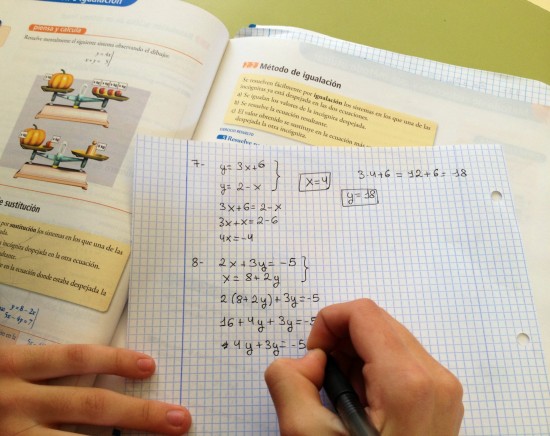 igualación
piensa y calcula
Resuelve mentalmente el siguiente sistema observando el dibujo:
Método de igualación
Se resuelven fácilmente por igualación los sistemas en los que una de las
incógnitas ya está despejada en las dos ecuaciones.
a) Se igualan los valores de la incógnita despejada.
b) Se resuelve la ecuación resultante.
c) El valor obtenido se sustituye en la ecuación más
despejada la otra incógnita.
7- y= 3x+6
y= 2-x
3x+6=2-x
3x+x=2-6
4x=-4
x=4
3·4+6 = 12+6 = 18
y=18
8- 2x+3y=-5
x= 8+2y
2(8+2y)+3y=-5
16+4y+3y=-5
4y+3y=-5
e sustitución
por sustitución los sistemas en los que una de las
incógnita despejada en la otra ecuación.
en la ecuación donde estaba despejada la